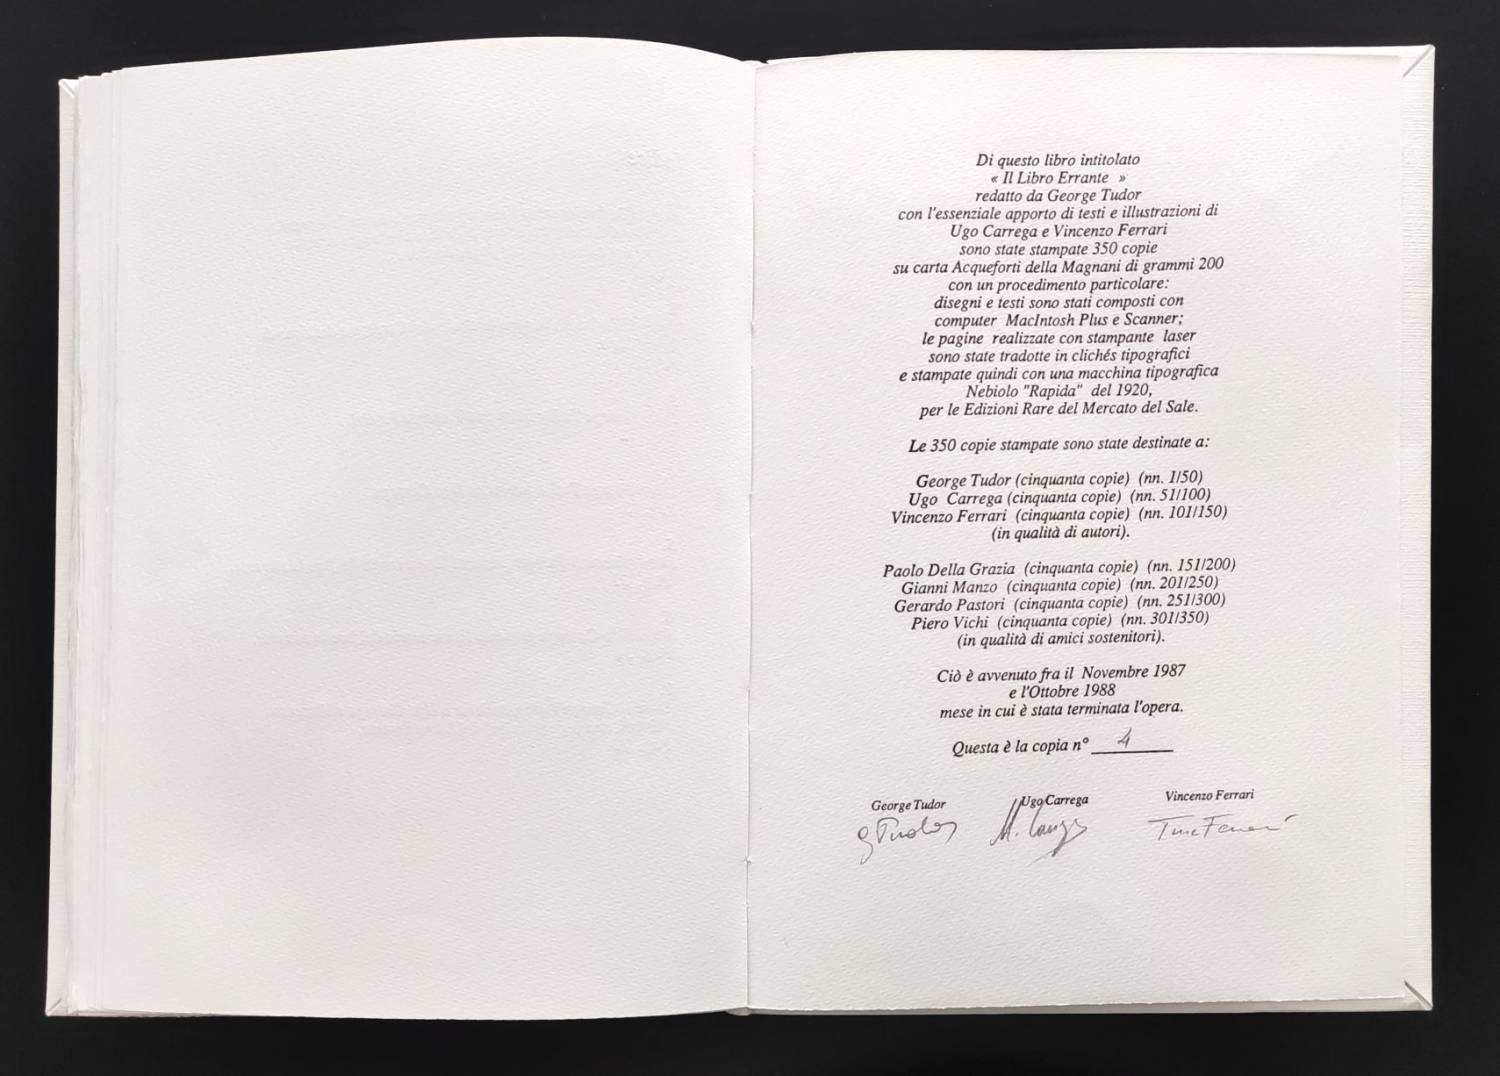 Di questo libro intitolato
« Il Libro Errante »
redatto da George Tudor
con l'essenziale apporto di testi e illustrazioni di
Ugo Carrega e Vincenzo Ferrari
sono state stampate 350 copie
su carta Acqueforti della Magnani di grammi 200
con un procedimento particolare:
disegni e testi sono stati composti con
computer MacIntosh Plus e Scanner;
le pagine realizzate con stampante laser
sono state tradotte in clichés tipografici
e stampate quindi con una macchina tipografica
Nebiolo "Rapida" del 1920,
per le Edizioni Rare del Mercato del Sale.
Le 350 copie stampate sono state destinate a:
George Tudor (cinquanta copie) (nn. 1/50)
Ugo Carrega (cinquanta copie) (nn. 51/100)
Vincenzo Ferrari (cinquanta copie) (nn. 101/150)
(in qualità di autori).
Paolo Della Grazia (cinquanta copie) (nn. 151/200)
Gianni Manzo (cinquanta copie) (nn. 201/250)
Gerardo Pastori (cinquanta copie) (nn. 251/300)
Piero Vichi (cinquanta copie) (nn. 301/350)
(in qualità di amici sostenitori).
Ciò è avvenuto fra il Novembre 1987
e l'Ottobre 1988
mese in cui è stata terminata l'opera.
Questa è la copia n° 4
George Tudor Ugo Carrega Vincenzo Ferrari